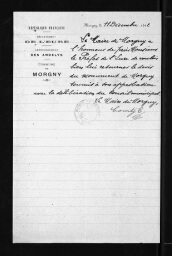 RÉPUBLIQUE FRANÇAISE
DÉPARTEMENT
DE L'EURE
ARRONDISSEMENT
DES ANDELYS
COMMUNE
DE
MORGNY
Morgny, le 11 Décembre
Le Maire de Morgny a
l'honneur de prier Monsieur
le Préfet de l'Eure de vouloir
bien lui retourner le devis
du monument de Morgny
soumis à son approbation
la délibération du conseil municipal
Le Maire de Morgny,